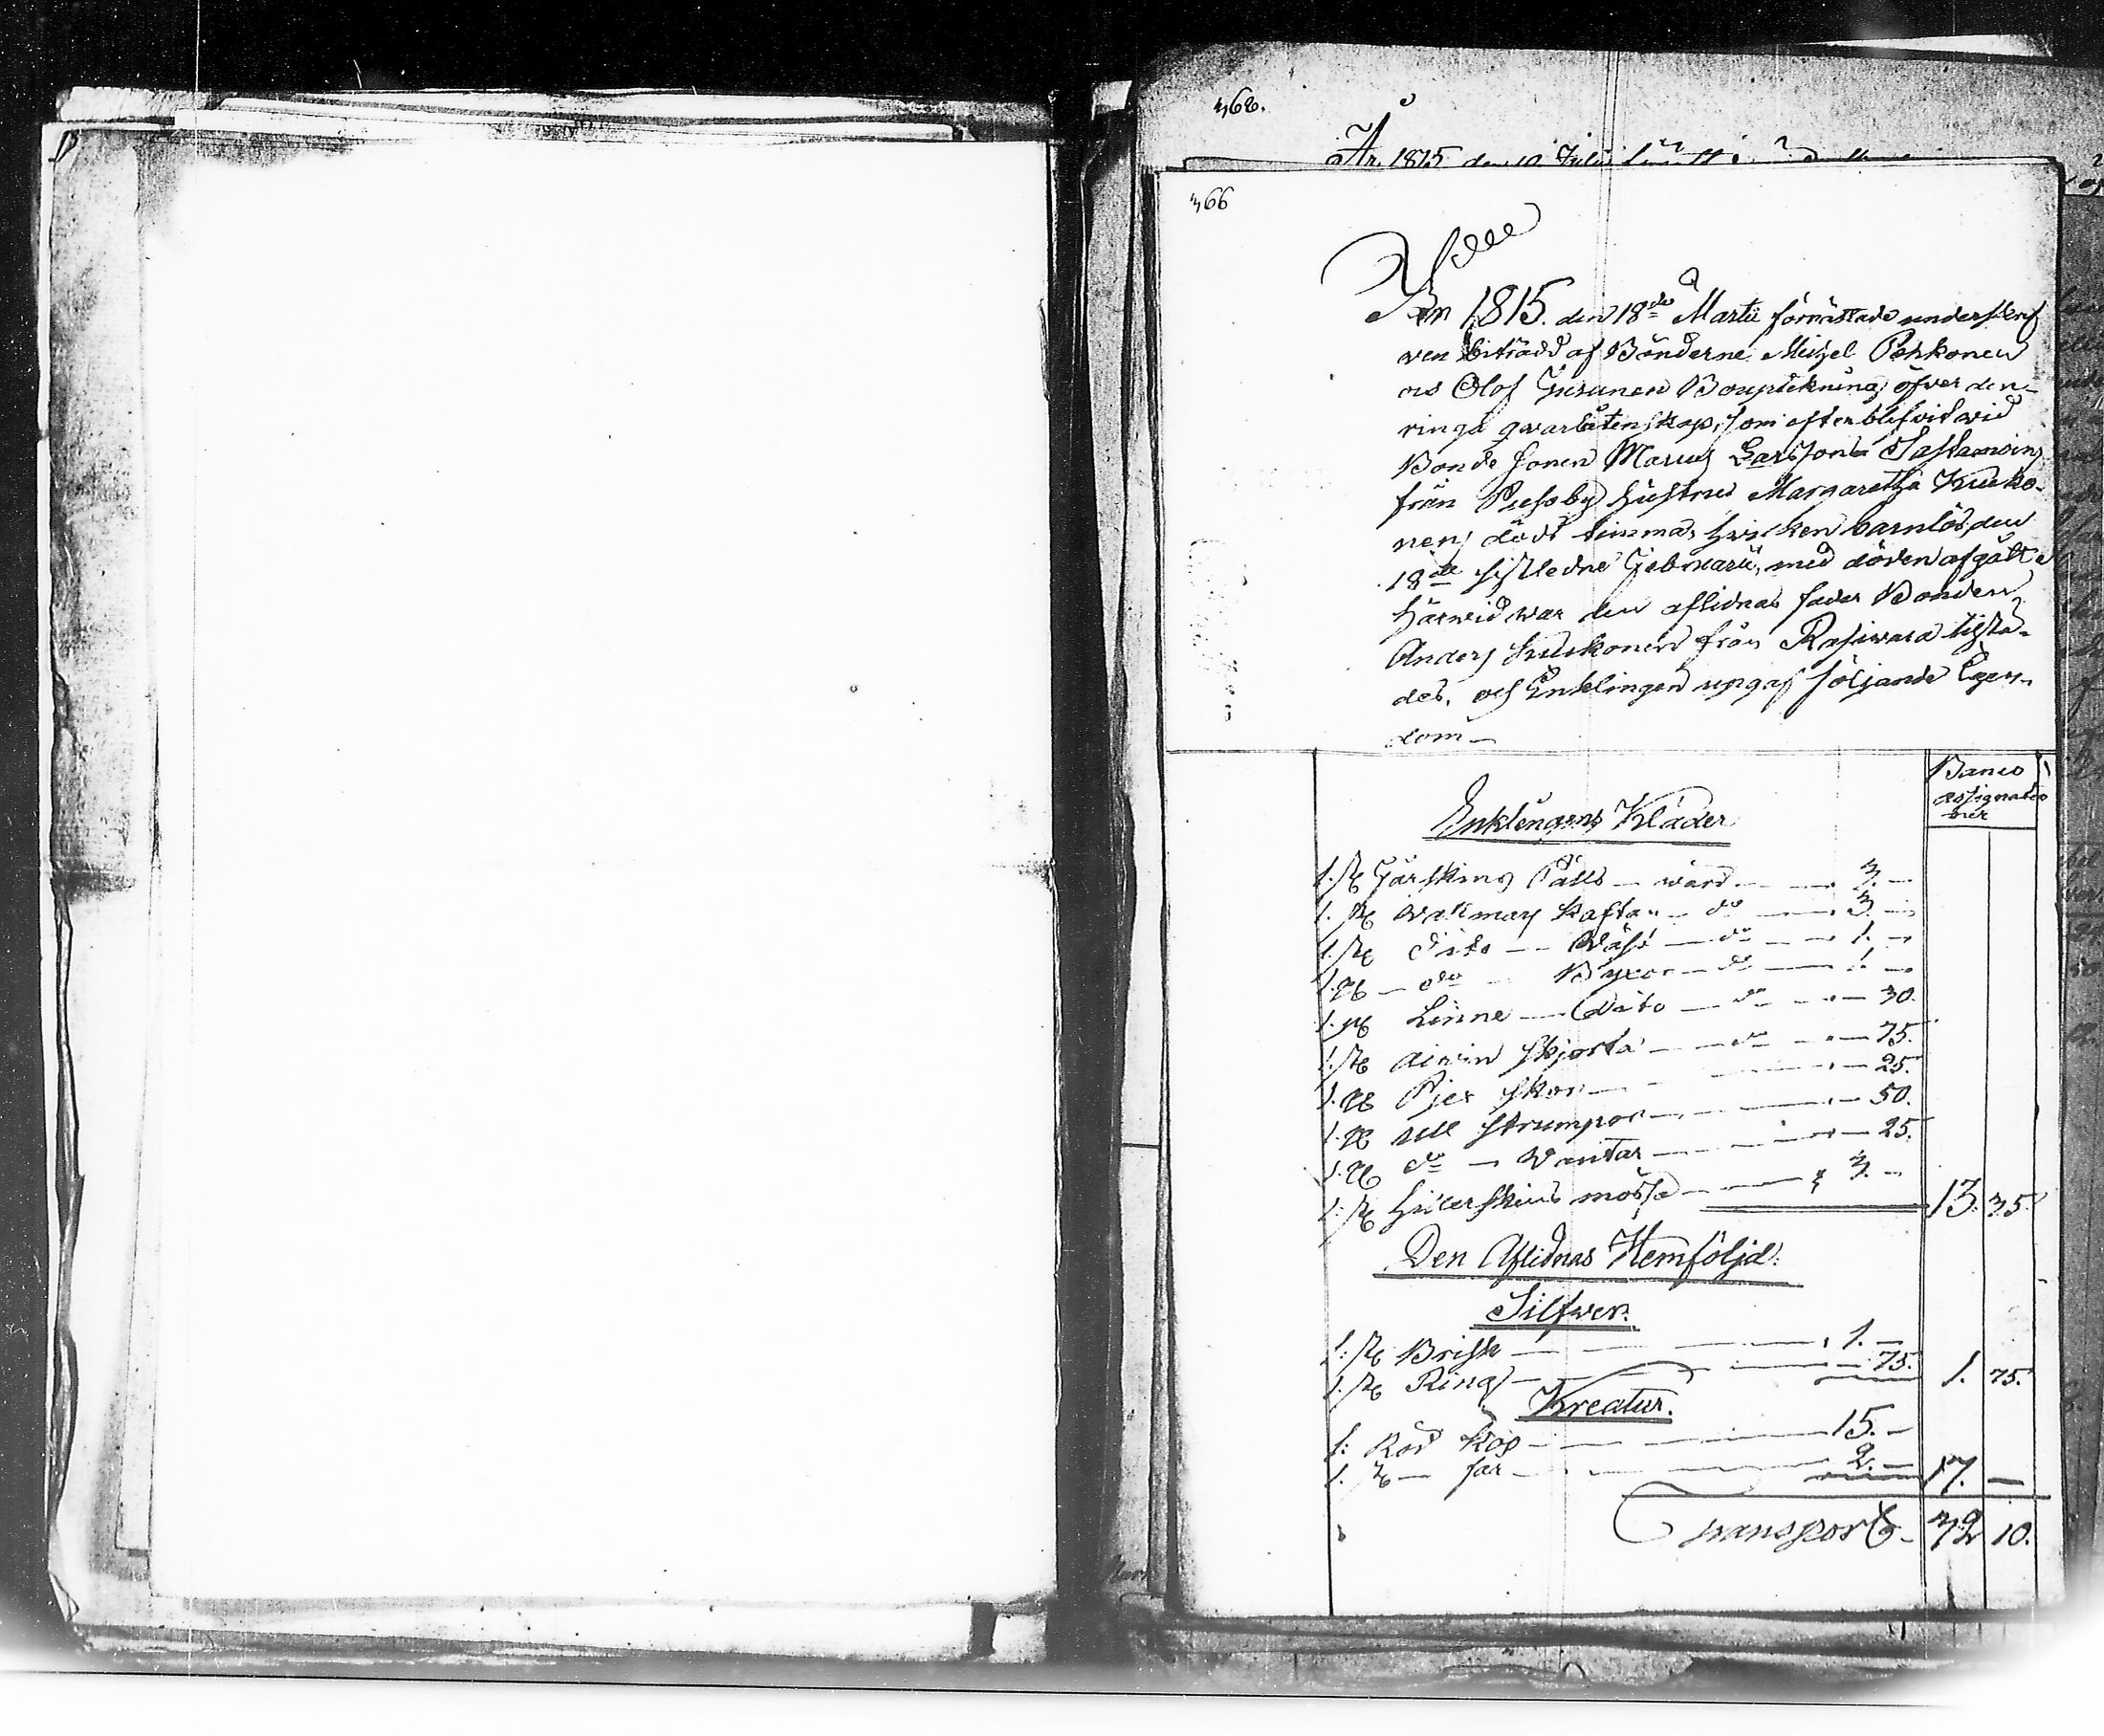 368.
År 1815 den 10 Julii
366
Åhr 1815. den 18de Martii förrättade underskref
ven biträdd af Bönderne Michel Pehkonen
och Olof Hiranen Bouptekning öfver den
ringa qwarlåtenskap, som efterblefvit wid
Bonde Sonen Marcus Larsson Sastamoinens
från Puso by hustrus Margaretha Kucko-
nens död timma, hwilken barnlös, den
18de sistledne Februarii, med döden afgått
härwid war den aflidnas fader Bonden
Anders Kuckonen från Rasiwara tilsta-
des, och Enklingen upgaf följande Egen-
dom
Banco
assignatio
ner
Enklingens Kläder
1. st Fårskins Päls — wärd — 3. —
1. st Wallmars Kaftan — do — 3. —
1. st Dito — Wäst — do — 1. —
1. st — do — Byxor — do — 1. —
1. st Linne — Dito — do — 30.
1. st skjorta — do — 75.
1. st Pjex skor — 25.
1. st ull strumpor — 50.
1. st do — Wantar — 25.
1. st mössa — 3. — 13. 35.
Den Aflidnas Hemföljd:
Silfwer.
1. st Brisk — 1. —
1. st Ring — 75. 1. 75.
Kreatur.
1: Röd Ko — 15. —
1. st — får — 2. — 17. —
Transport — 32 10.